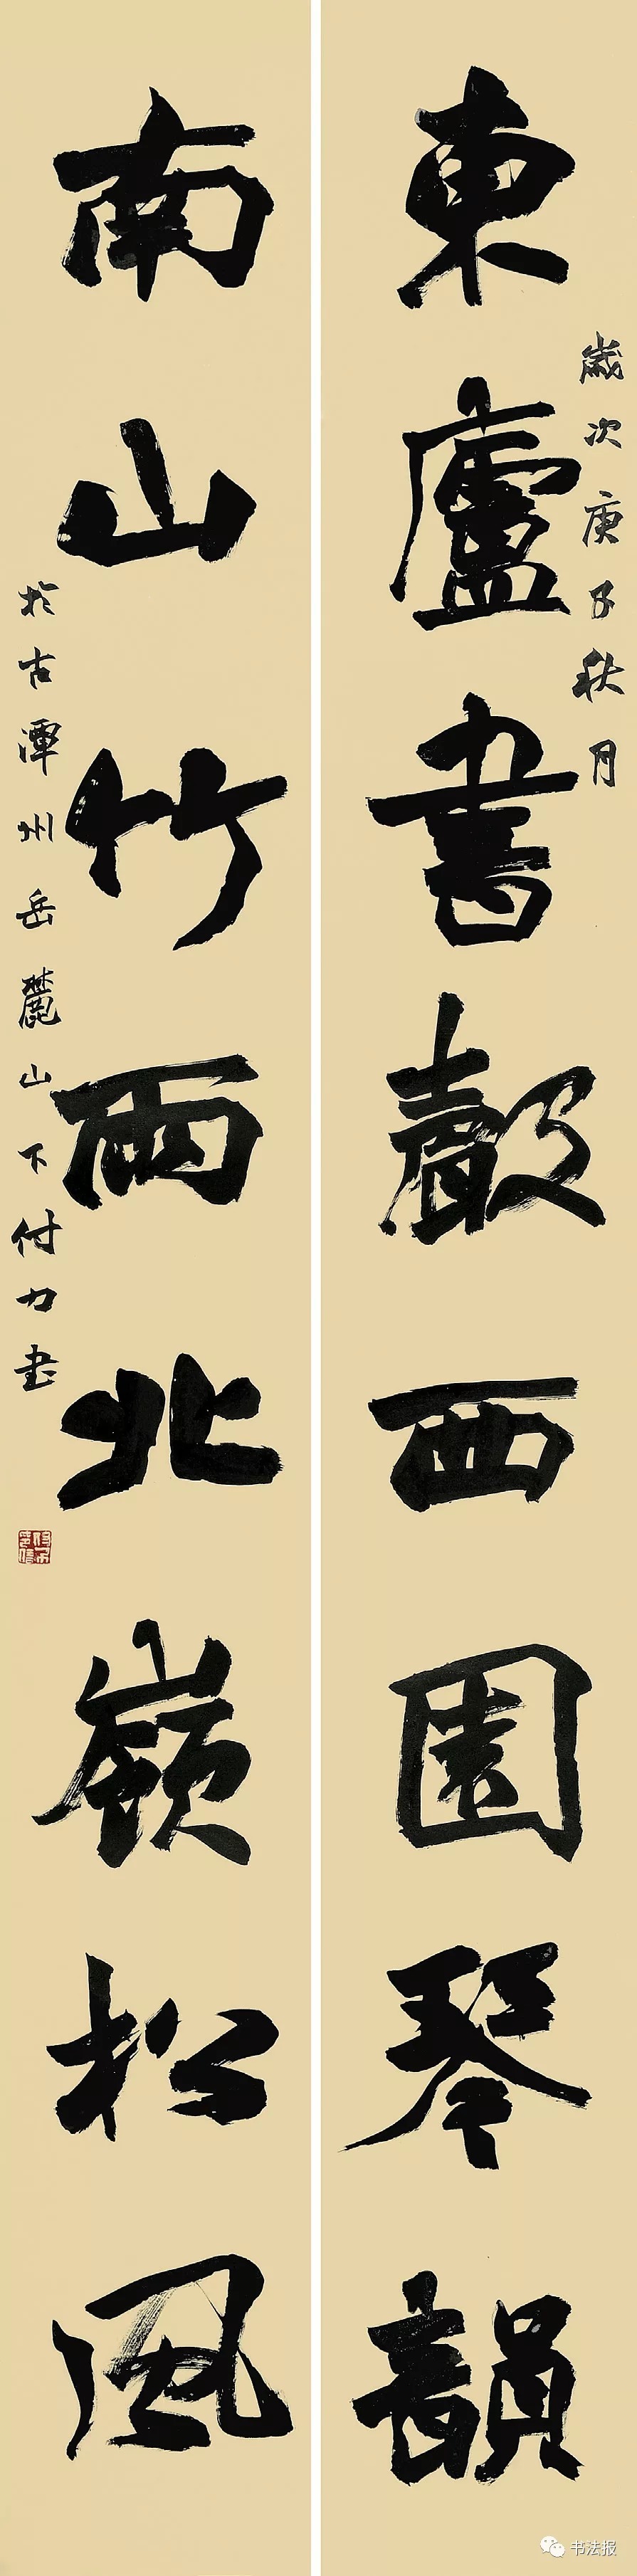 東廬書聲西園琴韻
歲次庚子秋月
南山竹雨北嶺松風
於古潭州岳麓山下付力書
书法报